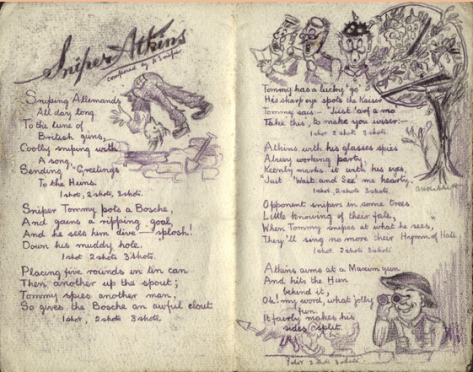 Sniper Atkins
composed by A Sniper
Sniping Allemands
All day long.
To the tune of
British guns,
Coolly sniping with
A song,
Sending "Greetings"
To the Huns.
1 shot, 2 shots, 3 shots.
Sniper Tommy pots a Bosche,
And gains a ripping goal,
And he sees him dive — splosh!
Down his muddy hole.
1 shot 2 shots 3 shots.
Placing five rounds in tin can
Then another up the spout;
Tommy spies another man,
So gives the Bosche an awful clout
1 shot, 2 shots 3 shots.
Tommy has a lucky "go"
His sharp eye spots the Kaiser
Tommy says — "Just 'arf a mo'
Take this, to make you wiser:—
1 shot 2 shots 3 shots.
Atkins with his glasses spies
A busy working party
Keenly marks it with his eyes,
"Just "Wait and See" me hearty.
1 shot, 2 shots 3 shots.
Opponent snipers in some trees
Little knowing of their fate,
When Tommy snipes at what he sees,
They'll sing no more their Hymn of Hate.
1 shot 2 shots 3 shots.
Atkins aims at a Maxim gun
And hits the Hun
behind it,
Oh! my word, what jolly
fun.
It fairly makes his
sides split.
1 shot 2 shots 3 shots.